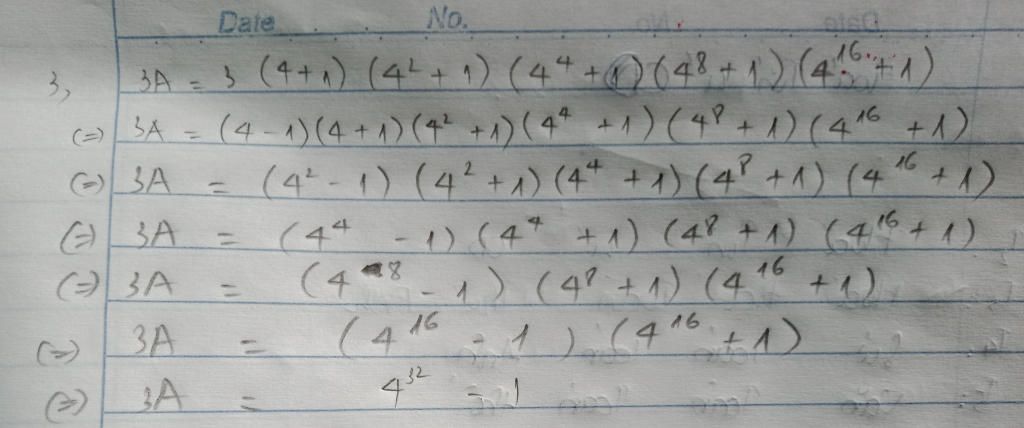 Date No.
3, 3A = 3 (4+1) (4² + 1) (4⁴ + 1) (4⁸ + 1) (4¹⁶ + 1)
(=) 3A = (4-1)(4+1)(4² +1)(4⁴ +1)(4⁸ + 1)(4¹⁶ +1)
(=) 3A = (4² - 1) (4² + 1) (4⁴ + 1) (4⁸ + 1) (4¹⁶ + 1)
(=) 3A = (4⁴ - 1) (4⁴ + 1) (4⁸ + 1) (4¹⁶ + 1)
(=) 3A = (4⁸ - 1) (4⁸ + 1) (4¹⁶ + 1)
(=) 3A = (4¹⁶ - 1) (4¹⁶ + 1)
(=) 3A = 4³² - 1